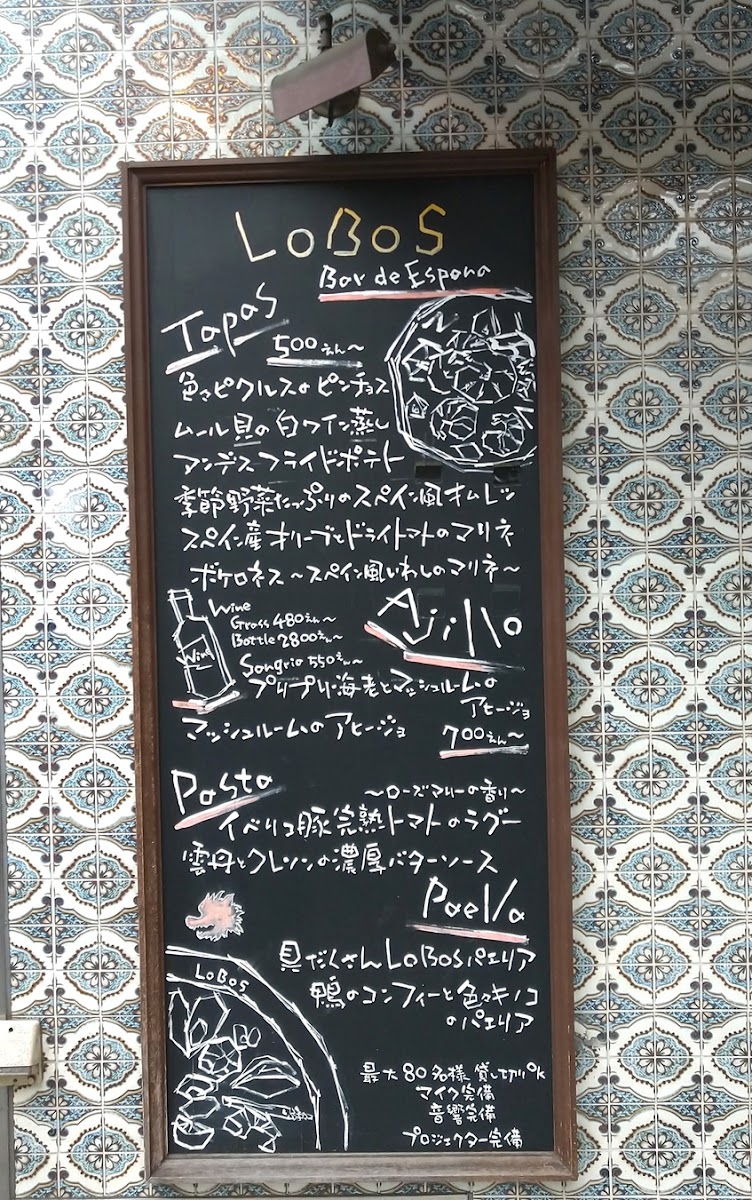 LoBoS
Bar de Espana
Tapas
500えん〜
色々ピクルスのピンチョス
ムール貝の白ワイン蒸し
アンデスフライドポテト
季節野菜たっぷりのスペイン風オムレツ
スペイン産オリーブとドライトマトのマリネ
ボケロネス〜スペイン風いわしのマリネ〜
Wine
Grass 480えん〜
Bottle 2800えん〜
Wine
Sangria 550えん〜
Ajillo
プリプリ海老とマッシュルームの
アヒージョ
マッシュルームのアヒージョ
700えん〜
Pasta
〜ローズマリーの香り〜
イベリコ豚完熟トマトのラグー
雲丹とクレソンの濃厚バターソース
Paella
具だくさんLoBoSパエリア
鴨のコンフィーと色々キノコ
のパエリア
LoBoS
最大80名様貸し切りok
マイク完備
音響完備
プロジェクター完備